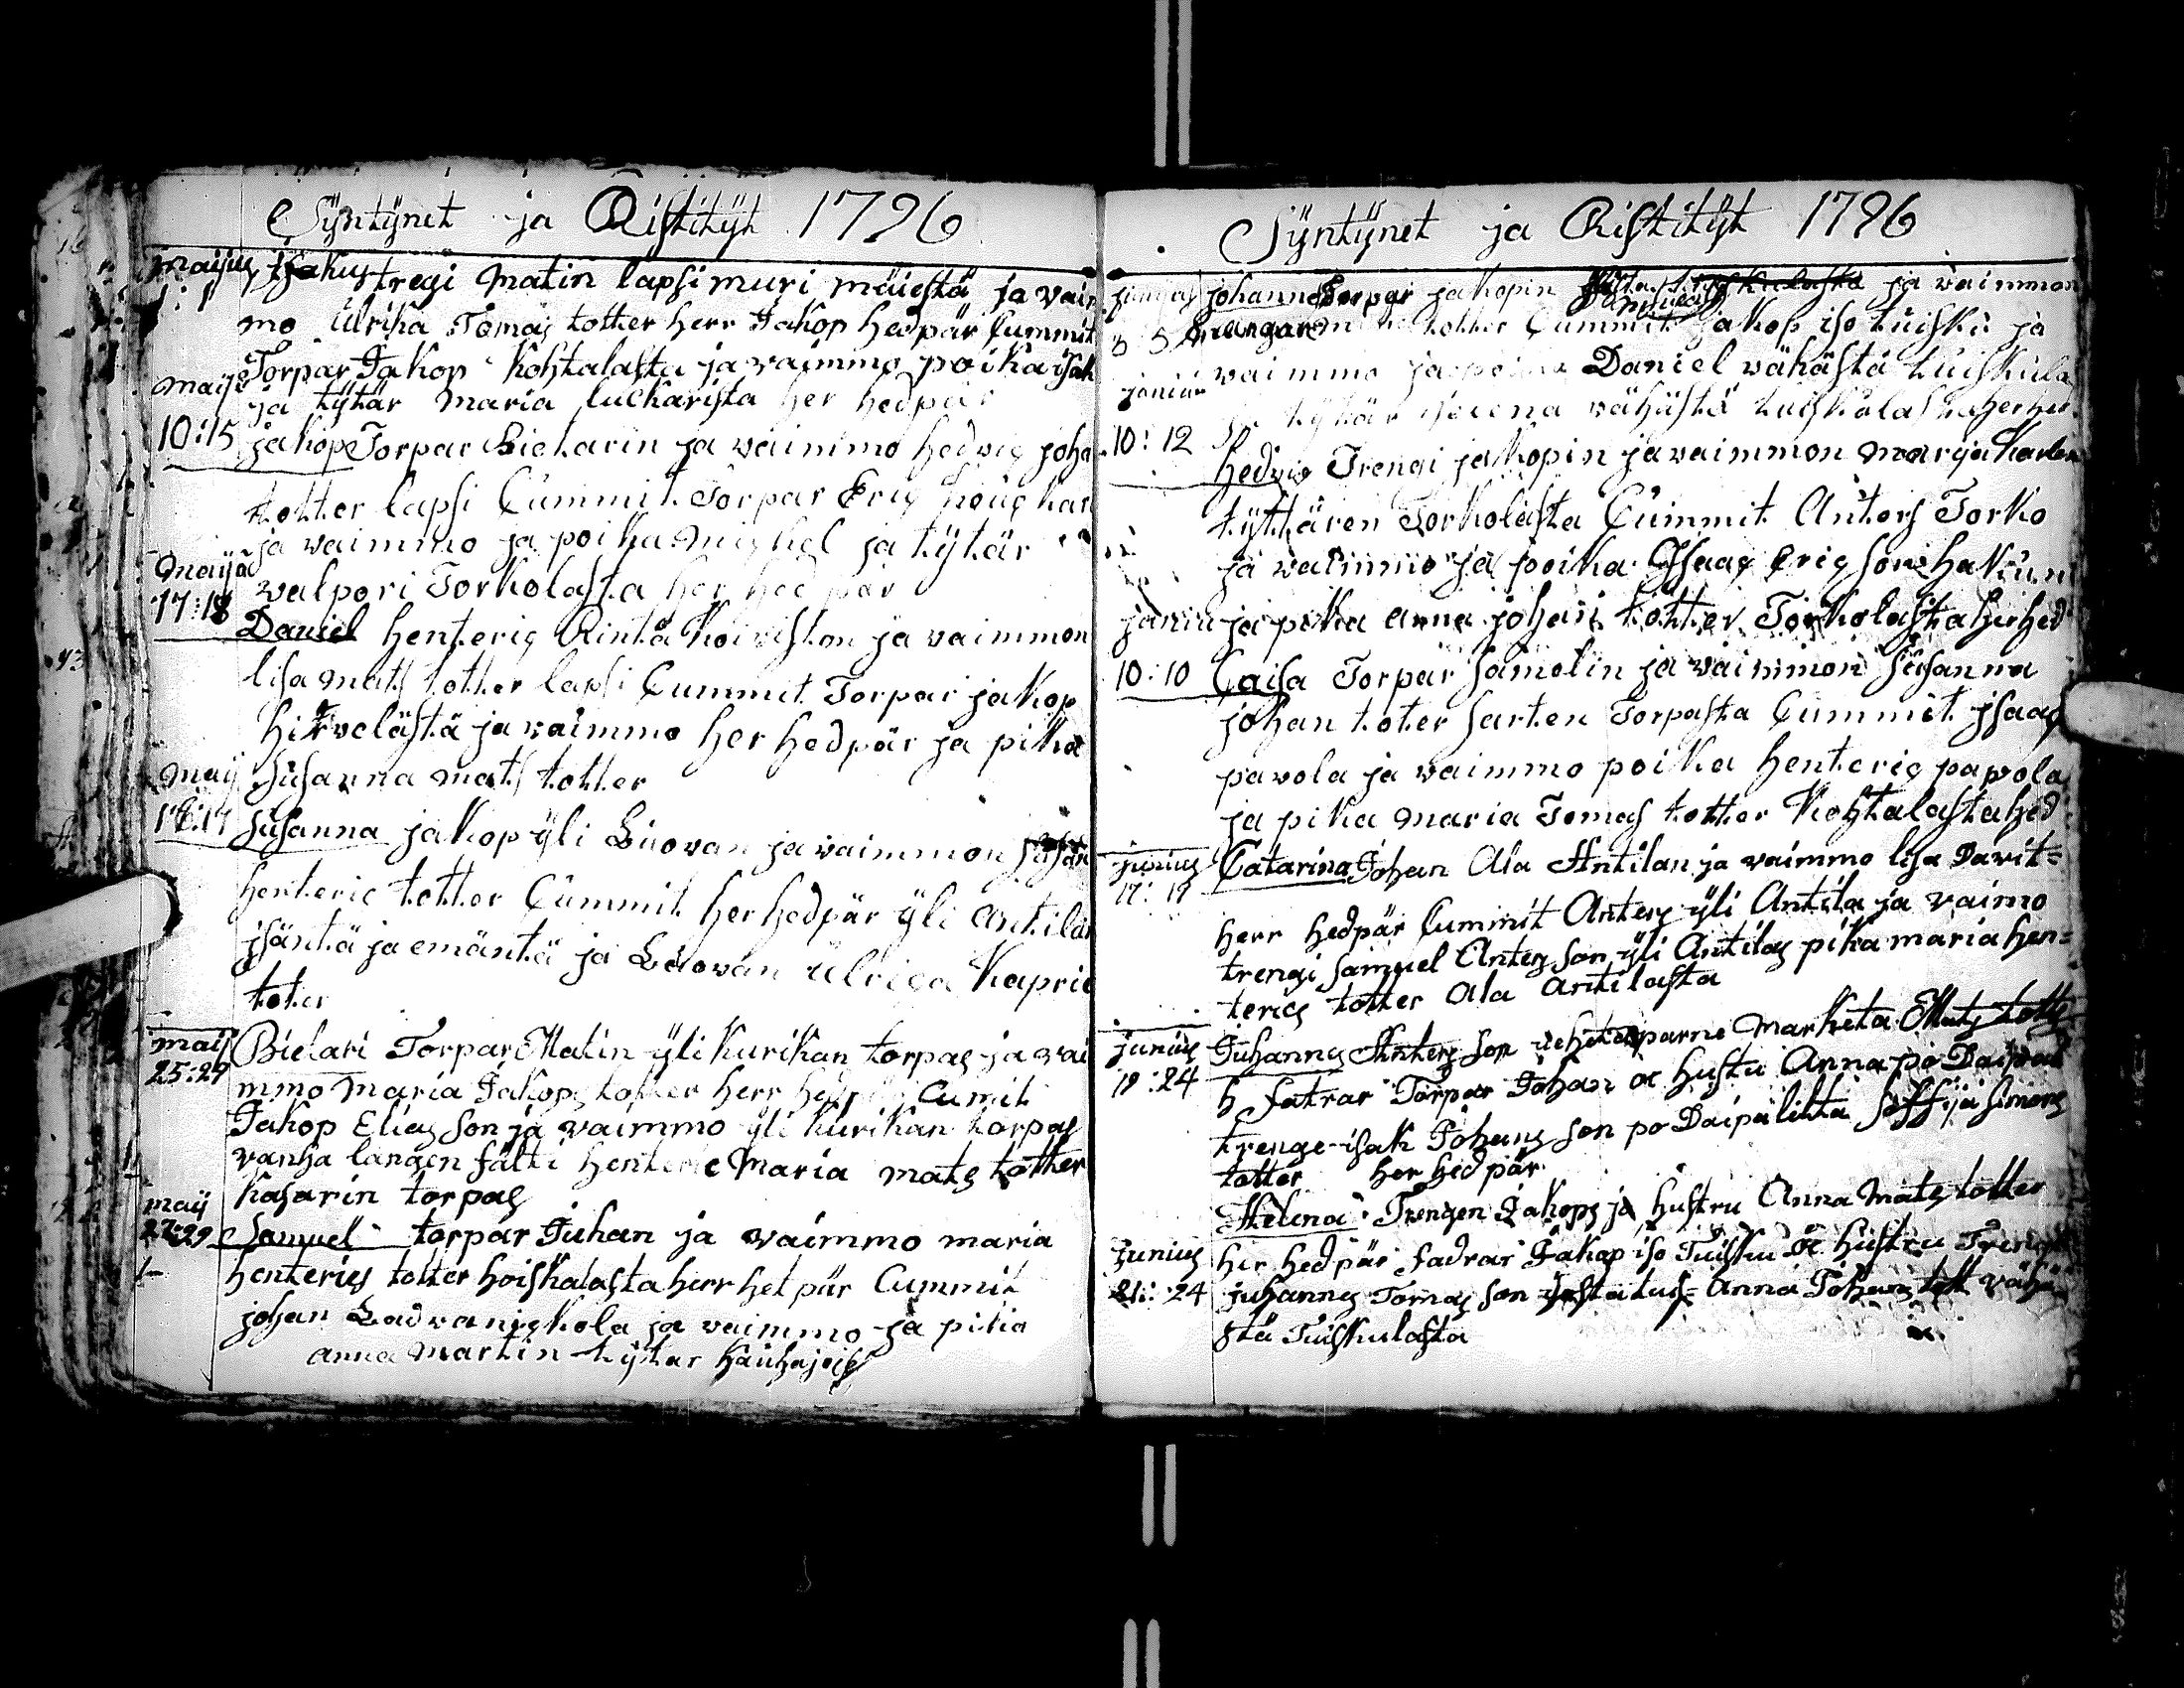 Syntynet ja Ristityt 1796
maijus Isakus tregi Matin lapsi muri mäiestä ja vaim
1:1 mo Ulrika Tomas totter herr Jakop hedpär Cummit
Torpar Jakop Kohtalasta ja vaimmo poika isak
maijus ja tytär Maria lucharista her hedpär
10:15 jakop Torpar Bietarin ja vaimmo hedvig joha
totter lapsi Cummit Torpar Erig
ja vaimmo ja poika Mighel ja tytär
maijus valpori Torkolasta her hedpär
17:18 Daniel henterig Rinta Koiviston ja vaimmon
lisa mats totter lapsi Cummit Torpar jakop
hirvelästä ja vaimmo her hedpär ja pika
maij Susanna mats totter
Susanna jakop yli Luovan ja vaimmon
henteric totter Cummit her hedpär yli Antilan
isäntä ja emäntä ja Luovan Ulrica Kapriel
toter
maij Bietari Torpar Matin yli kurikan torpas ja vai
25:29 mmo Maria Jakops totter herr hedpär Cumit
Jakop Elias son ja vaimmo yli kurikan torpas
vanha langen fälti henteric Maria mats totter
kasarin torpas
maij
27:29 Samuel torpar Juhan ja vaimmo maria
henterics totter hoiskalasta herr het pär Cummit
johan Ladvaniskola ja vaimmo ja pika
anna Martin tytar Kauhajois
Syntynet ja Ristityt 1796
junius johannes Torpar jakopin ja vaimmon
5 totter Cummit jakop iso tuisku ja
junius vaimmo ja poika Daniel vähästä tuiskula
tytär Helena vähästä tuiskulasta her hed
10:12 hedvig Trengi jakopin ja vaimmon marija Karlen
tyttären Torkolasta Cummit Anters Torko
ja vaimmo ja poika Isaac Erig son hakuni
junius ja pika anna johan totter Torkolasta her hed
10:10 Caisa Torpar Samelin ja vaimmon Susanna
johan toter Sarten Torpasta Cummit isaac
pavola ja vaimmo poika henteric pavola
ja pika maria Tomas totter Kohtalasta hed
junius Catarina Johan Ala Antilan ja vaimmo lisa Davit=
17:19 herr hedpär Cummit Anters yli Antila ja vaimo
trengi Samuel Anters son yli Antilas pika maria hen=
terics totter Ala Antilasta
junius Juhannes Anters son parne Marketa Mats totter
19:24 h fatrar Torpar Johan oc hustu Anna po Daipal
trenge isak Johans son po Daipalitta Soffija Simons
totter her hedpär
Helena Trengen Jakops ja hustru Anna Mats totter
junius her hedpär fadrar Jakop iso Tuisku oc hustru Trengi
21:24 juhannes Tomas son Anna Johans tott vähä
stä Tuiskulasta